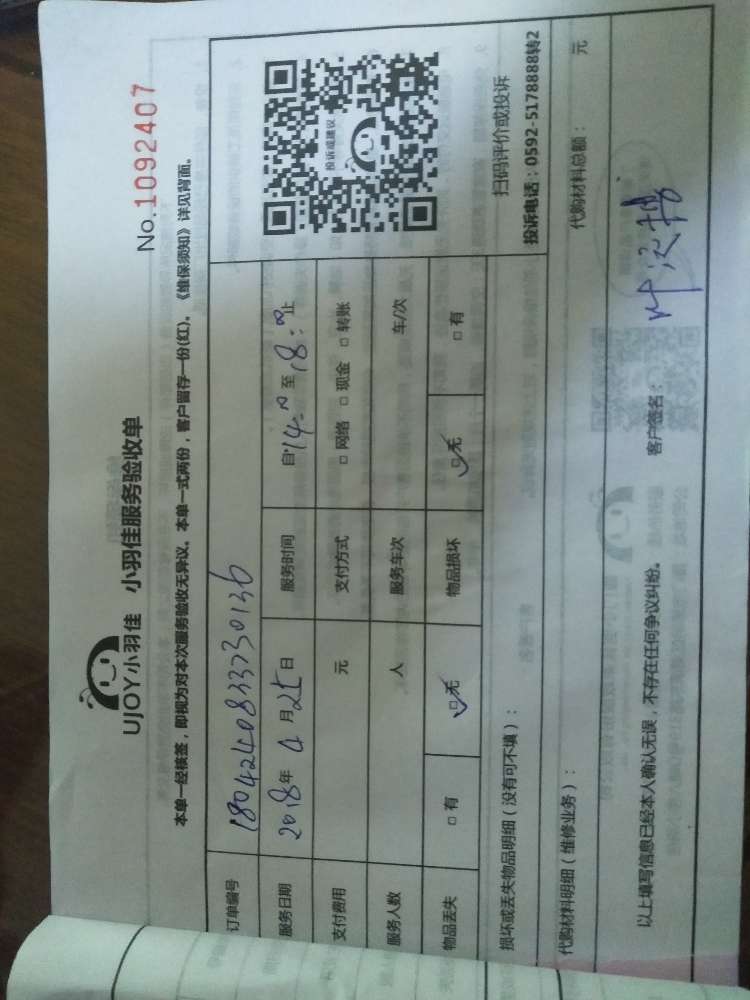 No.1092407
UJOY小羽佳 小羽佳服务验收单
本单一经核签，即视为对本次服务验收无异议。本单一式两份，客户留存一份(红)。《维保须知》详见背面。
订单编号 180424083373730136
投诉或建议
服务日期 2018年4月25日 服务时间 自14:00至18:00止
支付费用 元 支付方式 □网络 □现金 □转账
服务人数 人 服务车次 车/次
扫码评价或投诉
物品丢失 □有 ☑无 物品损坏 ☑无 □有
投诉电话：0592-5178888转2
损坏或丢失物品明细（没有可不填）：
代购材料明细（维修业务）： 代购材料总额： 元
以上填写信息已经本人确认无误，不存在任何争议纠纷。 客户签名：